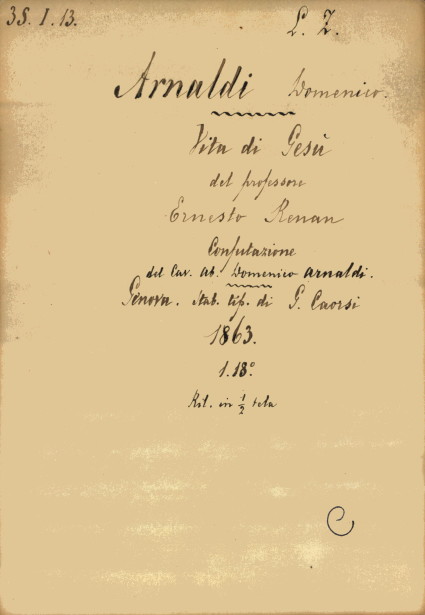 38. I. 13.
L. Z.
Arnaldi Domenico.
Vita di Gesù
del professore
Ernesto Renan
Confutazione
del Cav. Ab. Domenico Arnaldi.
Genova. Stab. tip. di G. Caorsi
1863.
1. 18°
Ril. in 1/2 tela